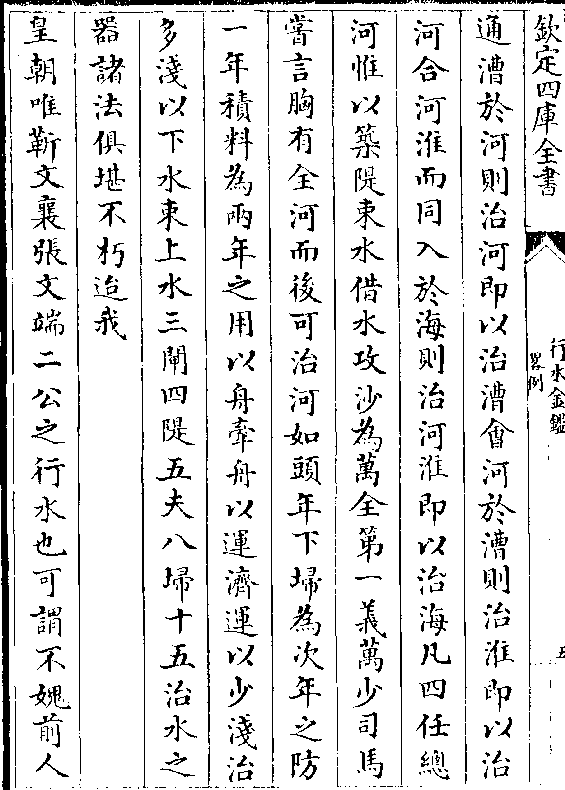 欽定四庫全書
行水金鑑
畧例
五
通漕於河則治河即以治漕會河於漕則治淮即以治
河合河淮而同入於海則治河淮即以治海凡四任總
河惟以築隄束水借水攻沙為萬全第一義萬少司馬
嘗言胸有全河而後可治河如頭年下埽為次年之防
一年積料為兩年之用以舟牽舟以運濟運以少淺治
多淺以下水束上水三閘四隄五夫八埽十五治水之
器諸法俱堪不朽迨我
皇朝唯靳文襄張文端二公之行水也可謂不媿前人